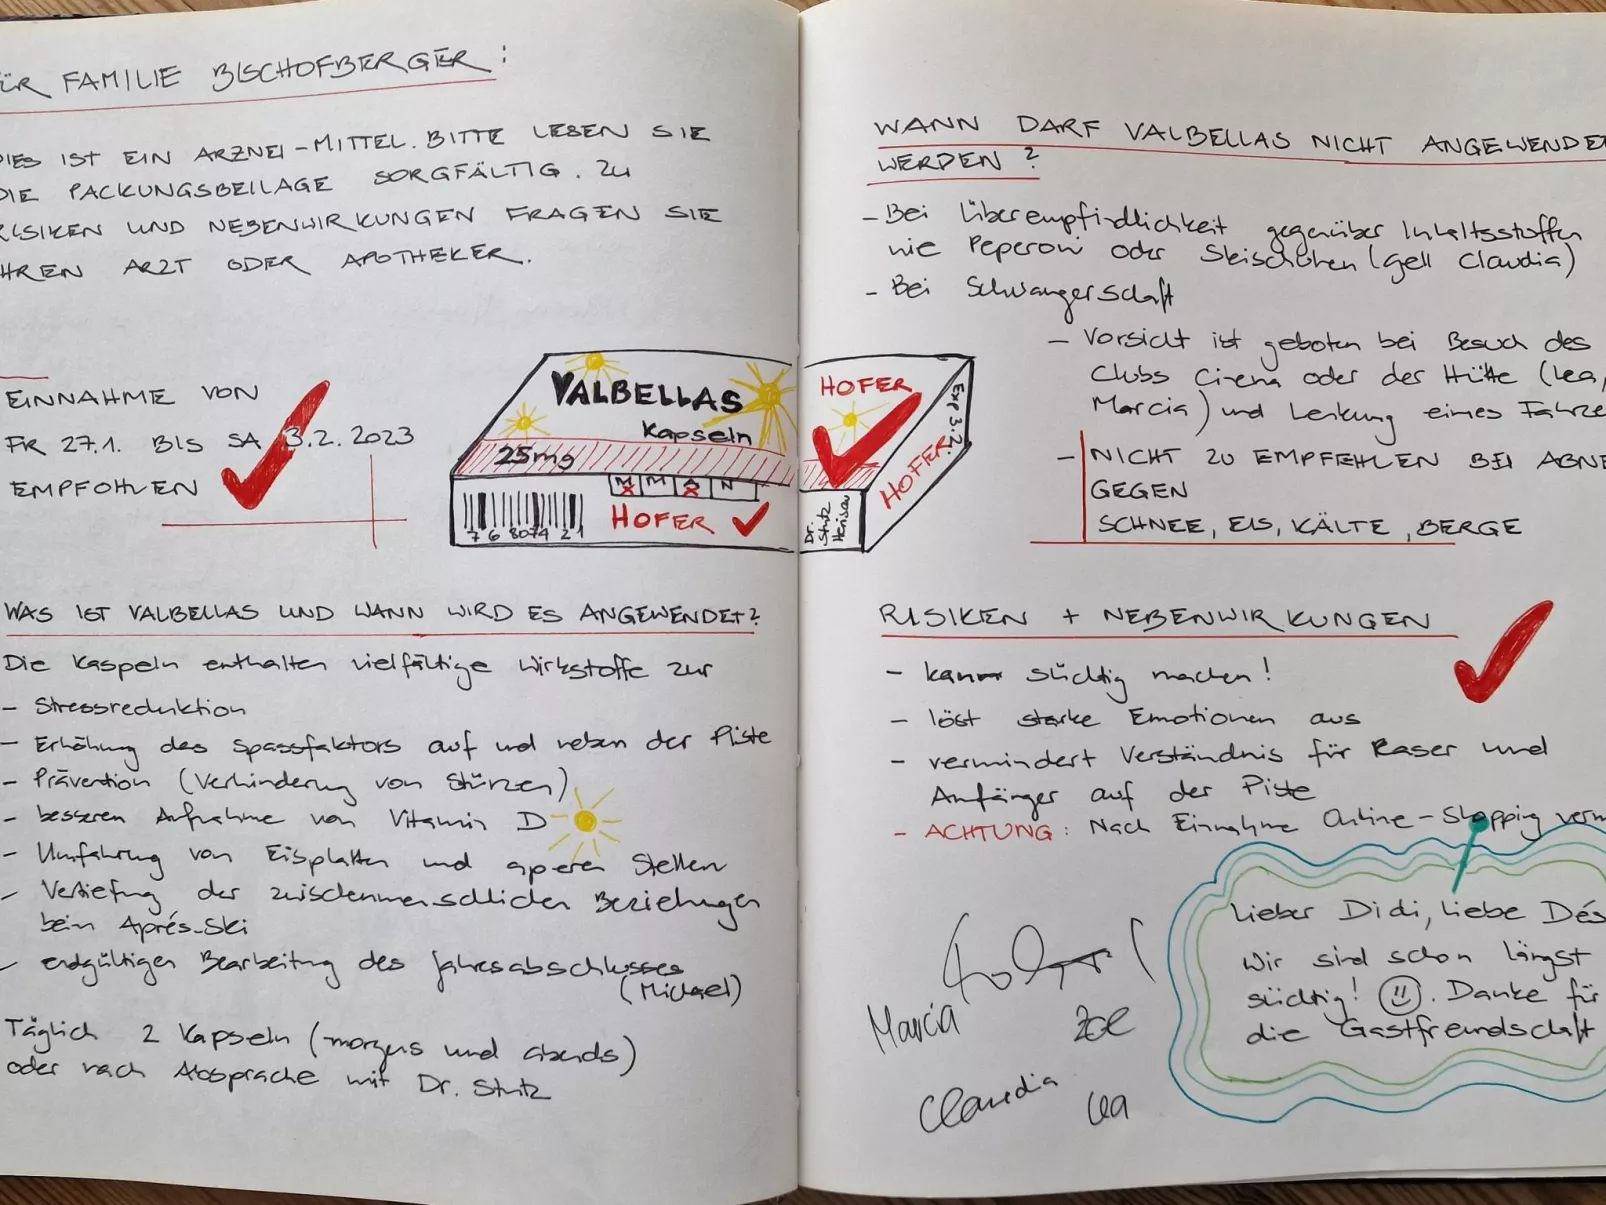 ÜR FAMILIE BISCHOFBERGER:
DIES IST EIN ARZNEI-MITTEL. BITTE LESEN SIE
DIE PACKUNGSBEILAGE SORGFÄLTIG. ZU
RISIKEN UND NEBENWIRKUNGEN FRAGEN SIE
IHREN ARZT ODER APOTHEKER.
EINNAHME VON
FR 27.1. BIS SA 3.2.2023
EMPFOHLEN
VALBELLAS
Kapseln
25mg
M M A N
HOFER
7 6 8074 2 1
WAS IST VALBELLAS UND WANN WIRD ES ANGEWENDET?
Die Kaspeln enthalten vielfältige Wirkstoffe zur
- Stressreduktion
- Erhöhung des Spassfaktors auf und neben der Piste
- Prävention (Verhinderung von Stürzen)
- besseren Aufnahme von Vitamin D
- Umfahrung von Eisplatten und aperen Stellen
- Vertiefung der zwischenmenschlichen Beziehungen
beim Après-Ski
- endgültigen Bearbeitung des Jahresabschlusses
(Michael)
Täglich 2 Kapseln (morgens und abends)
oder nach Absprache mit Dr. Stutz
WANN DARF VALBELLAS NICHT ANGEWENDE
WERDEN?
- Bei Überempfindlichkeit gegenüber Inhaltsstoffen
wie Peperoni oder Skischuhen (gell Claudia)
- Bei Schwangerschaft
- Vorsicht ist geboten bei Besuch des
Clubs Cinema oder der Hütte (Lea,
Marcia) und Lenkung eines Fahrze
- NICHT ZU EMPFEHLEN BEI ABNE
GEGEN
SCHNEE, EIS, KÄLTE, BERGE
HOFER
HOFER
Exp 3.2.
Dr.
Stutz
Herisau
RISIKEN + NEBENWIRKUNGEN
- kann süchtig machen!
- löst starke Emotionen aus
- vermindert Verständnis für Raser und
Anfänger auf der Piste
- ACHTUNG: Nach Einnahme Online-Shopping verm
Marcia
Zoe
Claudia
Lea
Lieber Didi, liebe Dés
Wir sind schon längst
süchtig! Danke für
die Gastfreundschaft